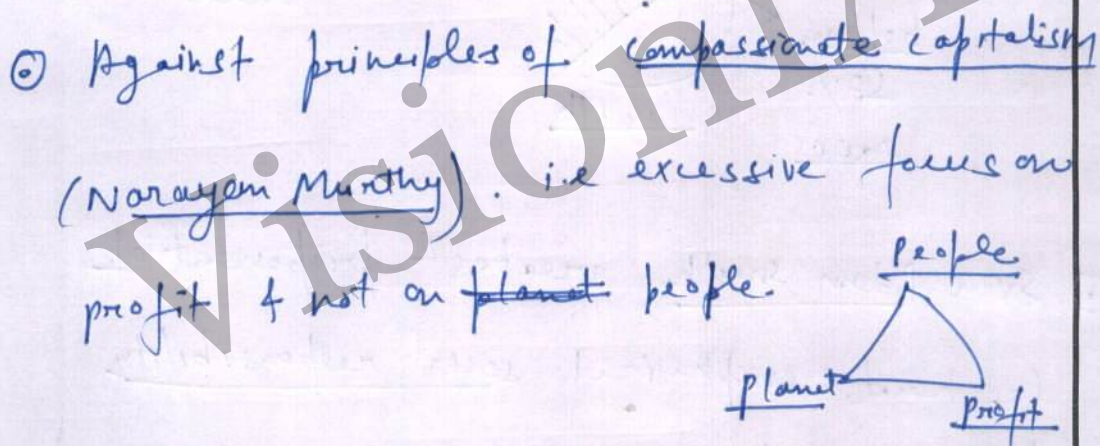 ⊙ Against principles of compassionate capitalism
(Narayan Murthy). i.e excessive focus on
profit & not on ~~planet~~ people.
People
Planet
Profit
Vision